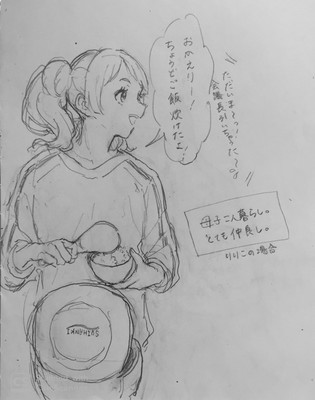 おかえりー！
ちょうどご飯
炊けたよ！
ただいまぁ〜っ
会議長かった
母子二人暮らし。
とても仲良し。
りりこの場合